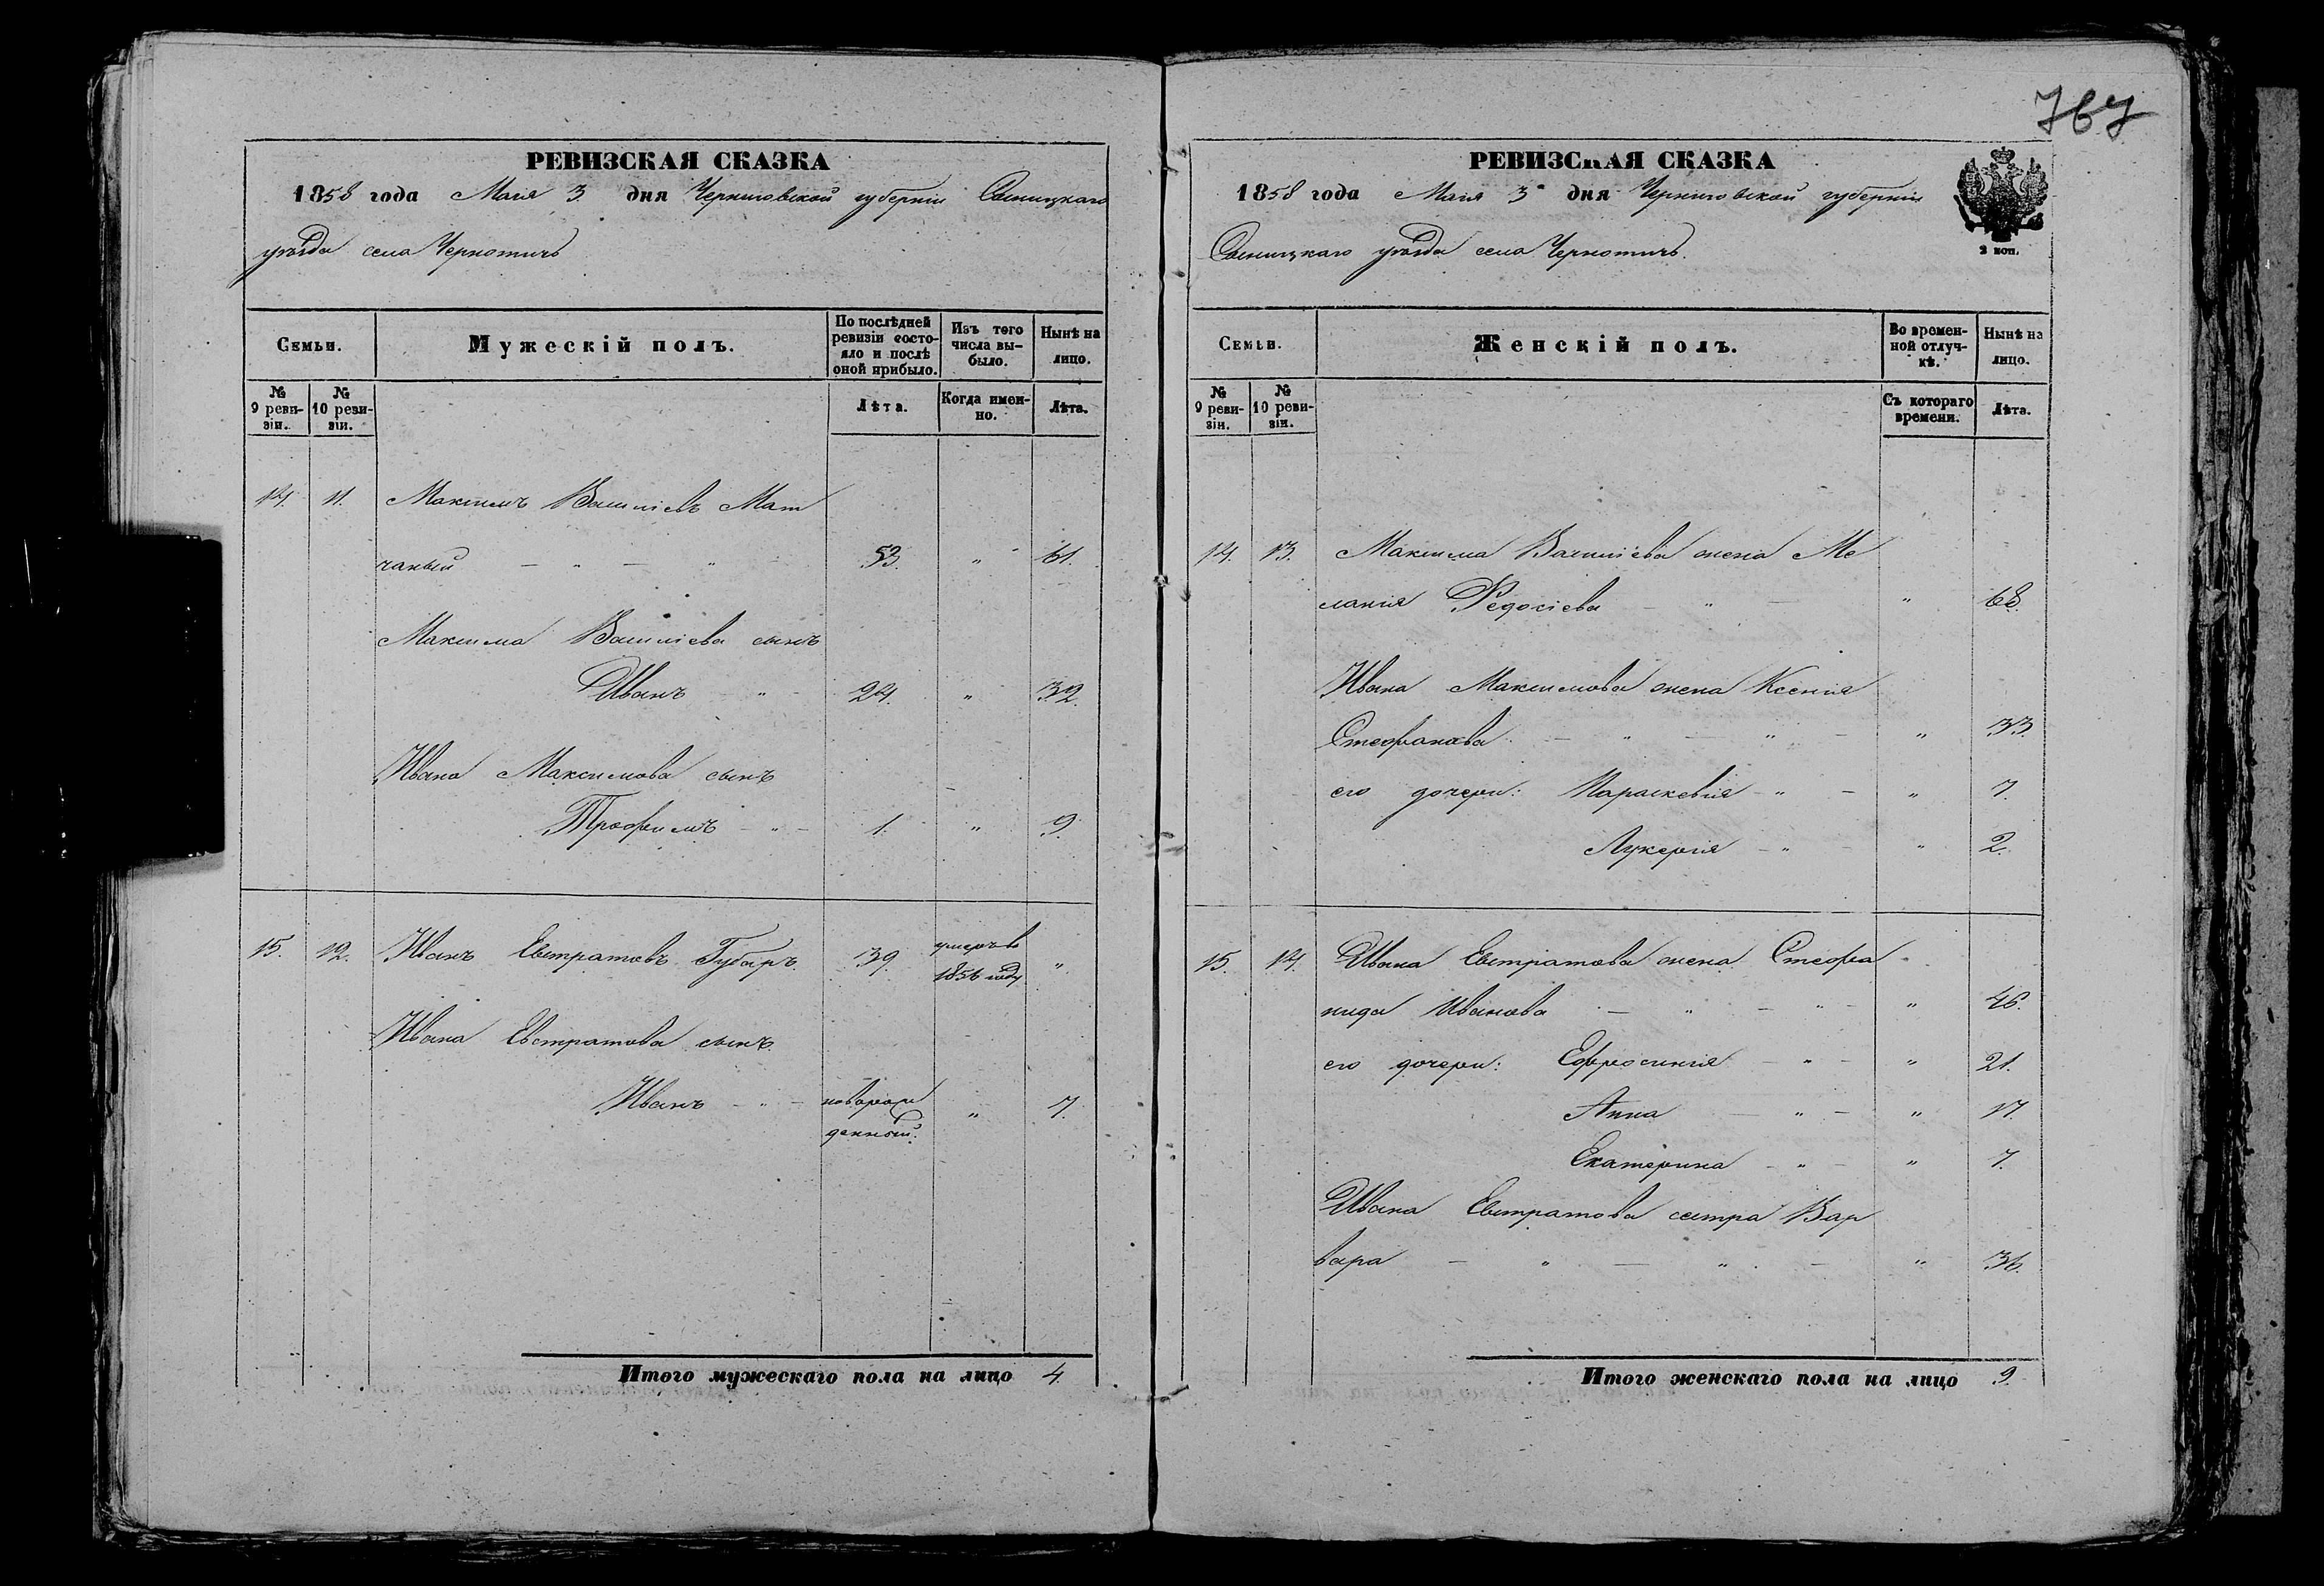 767
РЕВИЗСКАЯ СКАЗКА
1858 года Маія 3 дня Черниговской губерніи Сосницкаго
уѣзда села Чернотичь
Семьи.
Мужескій полъ.
По послѣдней ревизіи состояло и послѣ оной прибыло.
Изъ того числа выбыло.
Нынѣ на лицо.
№ 9 ревизіи.
№ 10 ревизіи.
Лѣта.
Когда именно.
Лѣта.
14. 11. Максимъ Василіевъ Мат
чаный — " — " 53. " 61.
Максима Василіева сынъ
Иванъ " 24. " 32.
Ивана Максимова сынъ
Трофимъ — " — 1. " 9.
15. 12. Иванъ Евстратовъ Губарь. 39. умеръ въ
1856 году "
Ивана Евстратова сынъ
Иванъ — " — новорож
денный. " 7.
Итого мужескаго пола на лицо 4.
РЕВИЗСКАЯ СКАЗКА
1858 года Маія 3 дня Черниговской губерніи
Сосницкаго уѣзда села Чернотичь.
2 коп.
Семьи.
Женскій полъ.
Во временной отлучкѣ.
Нынѣ на лицо.
№ 9 ревизіи.
№ 10 ревизіи.
Съ котораго времени.
Лѣта.
14. 13. Максима Василіева жена Ме
ланія Федосіева — " — " 68.
Ивана Максимова жена Ксенія
Стефанова — " — " — " 33.
его дочери: Параскевія — " — " 7.
Лукерія — " — " 2.
15. 14. Ивана Евстратова жена Стефа
нида Иванова — " — " — " 46.
его дочери: Ефросинія — " — " 21.
Анна — " — " 17.
Екатерина — " — " 7.
Ивана Евстратова сестра Вар
вара — " — " — " 36.
Итого женскаго пола на лицо 9.